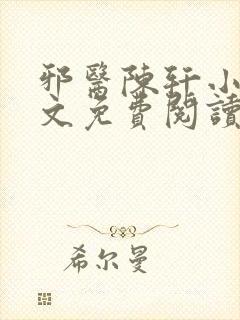 邪醫陳軒小
文免費閱讀
希尔曼